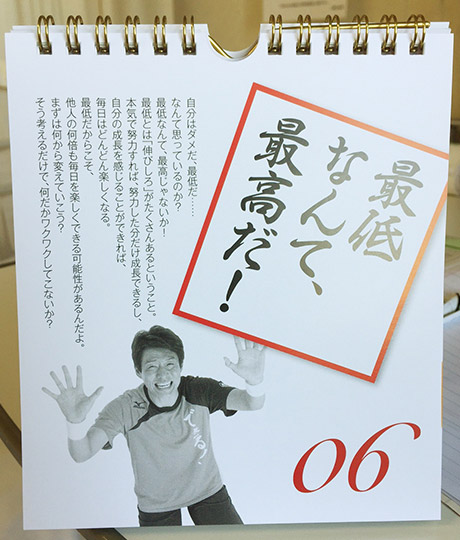 最低
なんて、
最高だ！
自分はダメだ、最低だ……
なんて思っているのか？
最低なんて、最高じゃないか！
最低とは「伸びしろ」がたくさんあるということ。
本気で努力すれば、努力した分だけ成長できるし、
自分の成長を感じることができれば、
毎日はどんどん楽しくなる。
最低だからこそ、
他人の何倍も毎日を楽しくできる可能性があるんだよ。
まずは何から変えていこう？
そう考えるだけで、何だかワクワクしてこないか？
できる！
06